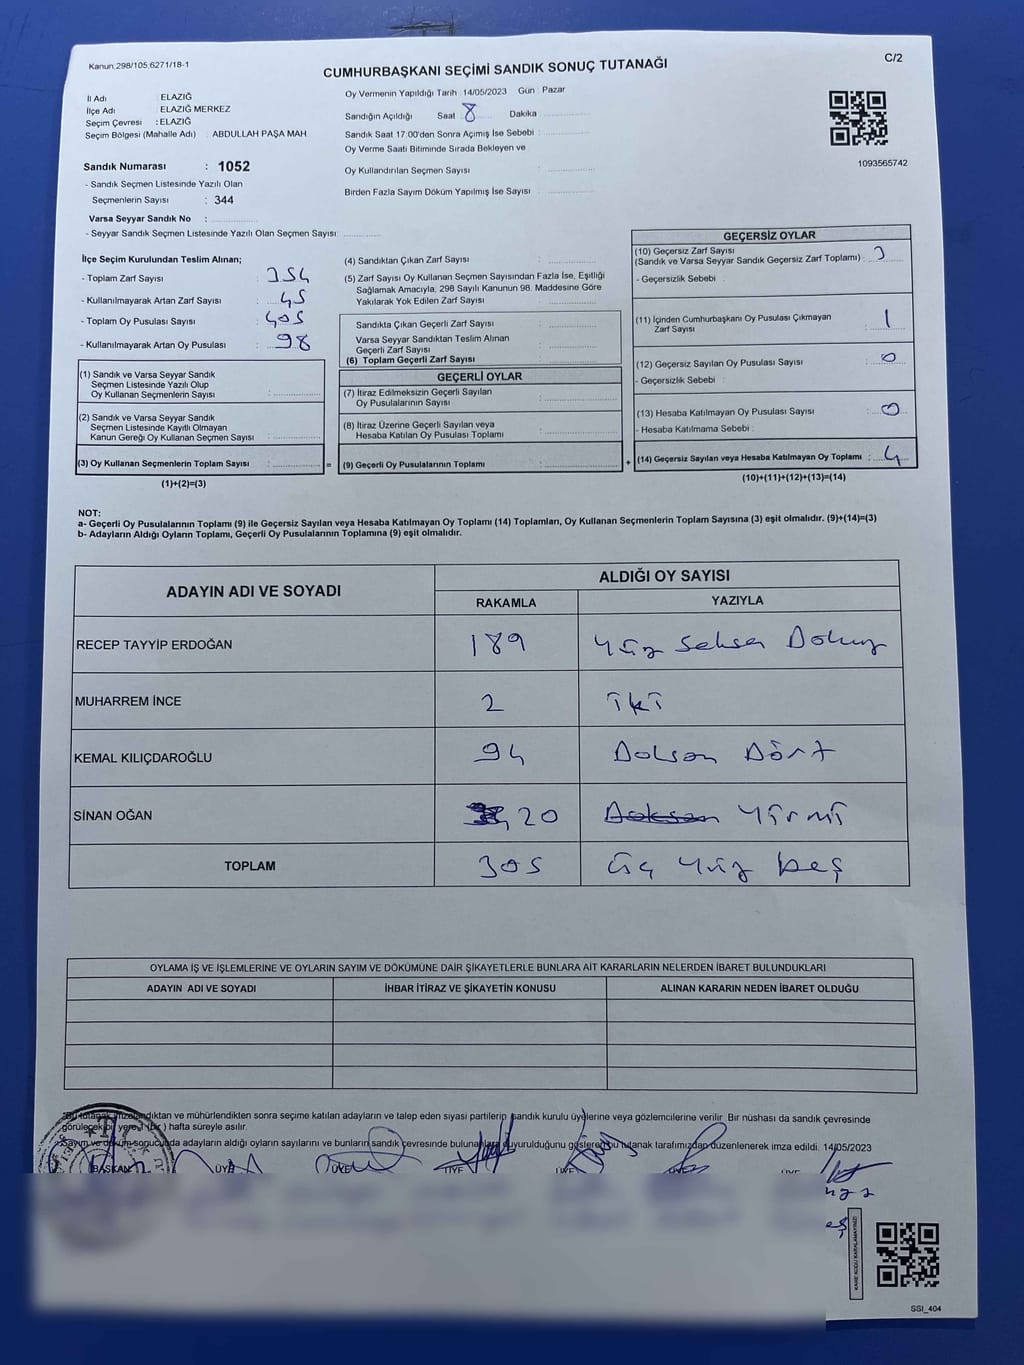 Kanun;298/105,6271/18-1
C/2
CUMHURBAŞKANI SEÇİMİ SANDIK SONUÇ TUTANAĞI
İl Adı : ELAZIĞ
İlçe Adı : ELAZIĞ MERKEZ
Seçim Çevresi : ELAZIĞ
Seçim Bölgesi (Mahalle Adı) : ABDULLAH PAŞA MAH.
Sandık Numarası : 1052
- Sandık Seçmen Listesinde Yazılı Olan
Seçmenlerin Sayısı : 344
Varsa Seyyar Sandık No :
- Seyyar Sandık Seçmen Listesinde Yazılı Olan Seçmen Sayısı:
Oy Vermenin Yapıldığı Tarih : 14/05/2023 Gün : Pazar
Sandığın Açıldığı Saat : 8 Dakika :
Sandık Saat 17:00'den Sonra Açımış İse Sebebi :
Oy Verme Saati Bitiminde Sırada Bekleyen ve
Oy Kullandırılan Seçmen Sayısı :
Birden Fazla Sayım Döküm Yapılmış İse Sayısı :
1093565742
İlçe Seçim Kurulundan Teslim Alınan;
- Toplam Zarf Sayısı : 354
- Kullanılmayarak Artan Zarf Sayısı : 45
- Toplam Oy Pusulası Sayısı : 405
- Kullanılmayarak Artan Oy Pusulası : 98
(1) Sandık ve Varsa Seyyar Sandık
Seçmen Listesinde Yazılı Olup
Oy Kullanan Seçmenlerin Sayısı :
(2) Sandık ve Varsa Seyyar Sandık
Seçmen Listesinde Kayıtlı Olmayan
Kanun Gereği Oy Kullanan Seçmen Sayısı :
(3) Oy Kullanan Seçmenlerin Toplam Sayısı : =
(1)+(2)=(3)
(4) Sandıktan Çıkan Zarf Sayısı :
(5) Zarf Sayısı Oy Kullanan Seçmen Sayısından Fazla İse, Eşitliği
Sağlamak Amacıyla, 298 Sayılı Kanunun 98. Maddesine Göre
Yakılarak Yok Edilen Zarf Sayısı :
Sandıkta Çıkan Geçerli Zarf Sayısı :
Varsa Seyyar Sandıktan Teslim Alınan
Geçerli Zarf Sayısı :
(6) Toplam Geçerli Zarf Sayısı :
GEÇERLİ OYLAR
(7) İtiraz Edilmeksizin Geçerli Sayılan
Oy Pusulalarının Sayısı :
(8) İtiraz Üzerine Geçerli Sayılan veya
Hesaba Katılan Oy Pusulası Toplamı :
(9) Geçerli Oy Pusulalarının Toplamı : +
GEÇERSİZ OYLAR
(10) Geçersiz Zarf Sayısı
(Sandık ve Varsa Seyyar Sandık Geçersiz Zarf Toplamı) : 3
- Geçersizlik Sebebi :
(11) İçinden Cumhurbaşkanı Oy Pusulası Çıkmayan
Zarf Sayısı : 1
(12) Geçersiz Sayılan Oy Pusulası Sayısı : 0
- Geçersizlik Sebebi :
(13) Hesaba Katılmayan Oy Pusulası Sayısı : 0
- Hesaba Katılmama Sebebi :
(14) Geçersiz Sayılan veya Hesaba Katılmayan Oy Toplamı : 4
(10)+(11)+(12)+(13)=(14)
NOT:
a- Geçerli Oy Pusulalarının Toplamı (9) ile Geçersiz Sayılan veya Hesaba Katılmayan Oy Toplamı (14) Toplamları, Oy Kullanan Seçmenlerin Toplam Sayısına (3) eşit olmalıdır. (9)+(14)=(3)
b- Adayların Aldığı Oyların Toplamı, Geçerli Oy Pusulalarının Toplamına (9) eşit olmalıdır.
ADAYIN ADI VE SOYADI
ALDIĞI OY SAYISI
RAKAMLA YAZIYLA
RECEP TAYYİP ERDOĞAN 189 Yüz Seksen Dokuz
MUHARREM İNCE 2 iki
KEMAL KILIÇDAROĞLU 94 Doksan Dört
SİNAN OĞAN 20 Doksan Yirmi
TOPLAM 305 üç Yüz beş
OYLAMA İŞ VE İŞLEMLERİNE VE OYLARIN SAYIM VE DÖKÜMÜNE DAİR ŞİKAYETLERLE BUNLARA AİT KARARLARIN NELERDEN İBARET BULUNDUKLARI
ADAYIN ADI VE SOYADI İHBAR İTİRAZ VE ŞİKAYETİN KONUSU ALINAN KARARIN NEDEN İBARET OLDUĞU
sonra seçime katılan adayların ve talep eden siyasi partilerin sandık kurulu üyelerine veya gözlemcilerine verilir. Bir nüshası da sandık çevresinde
görülecek bir yere 1 (bir) hafta süreyle asılır.
adayların aldığı oyların sayılarını ve bunların sandık çevresinde duyurulduğunu gösteren bu tutanak tarafımızdan düzenlenerek imza edildi. 14/05/2023
BAŞKAN ÜYE ÜYE ÜYE ÜYE ÜYE
SSI_404